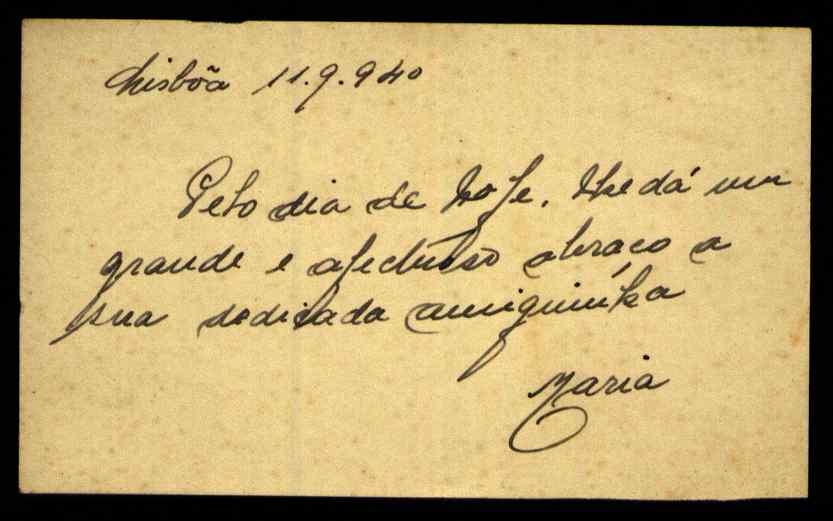 Lisbôa 11.9.940
Pelo dia de hoje, lhe dá um
grande e afectuoso abraço a
sua dedicada amiguinha
Maria